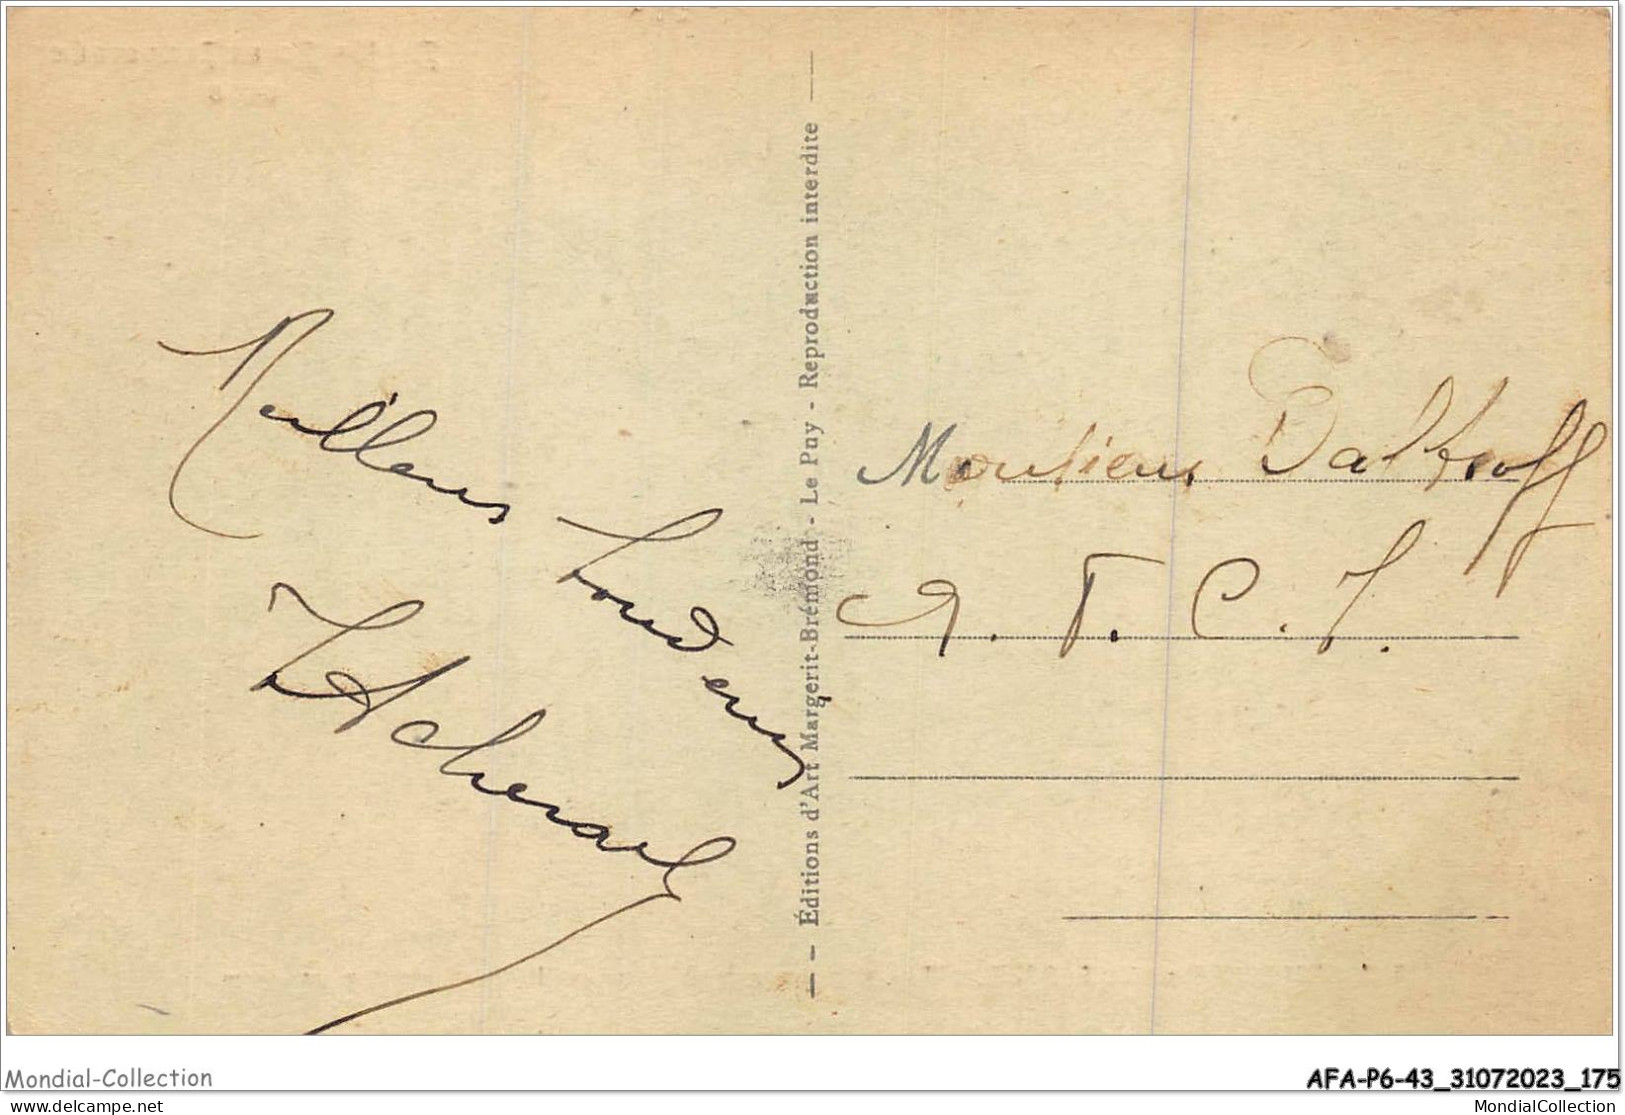 Meilleurs Souvenirs
Éditions d'Art Margerit-Brémond - Le Puy - Reproduction interdite
Monsieur Baltzoff
A. T. C. F.
Mondial-Collection
AFA-P6-43_31072023_175
www.delcampe.net
MondialCollection